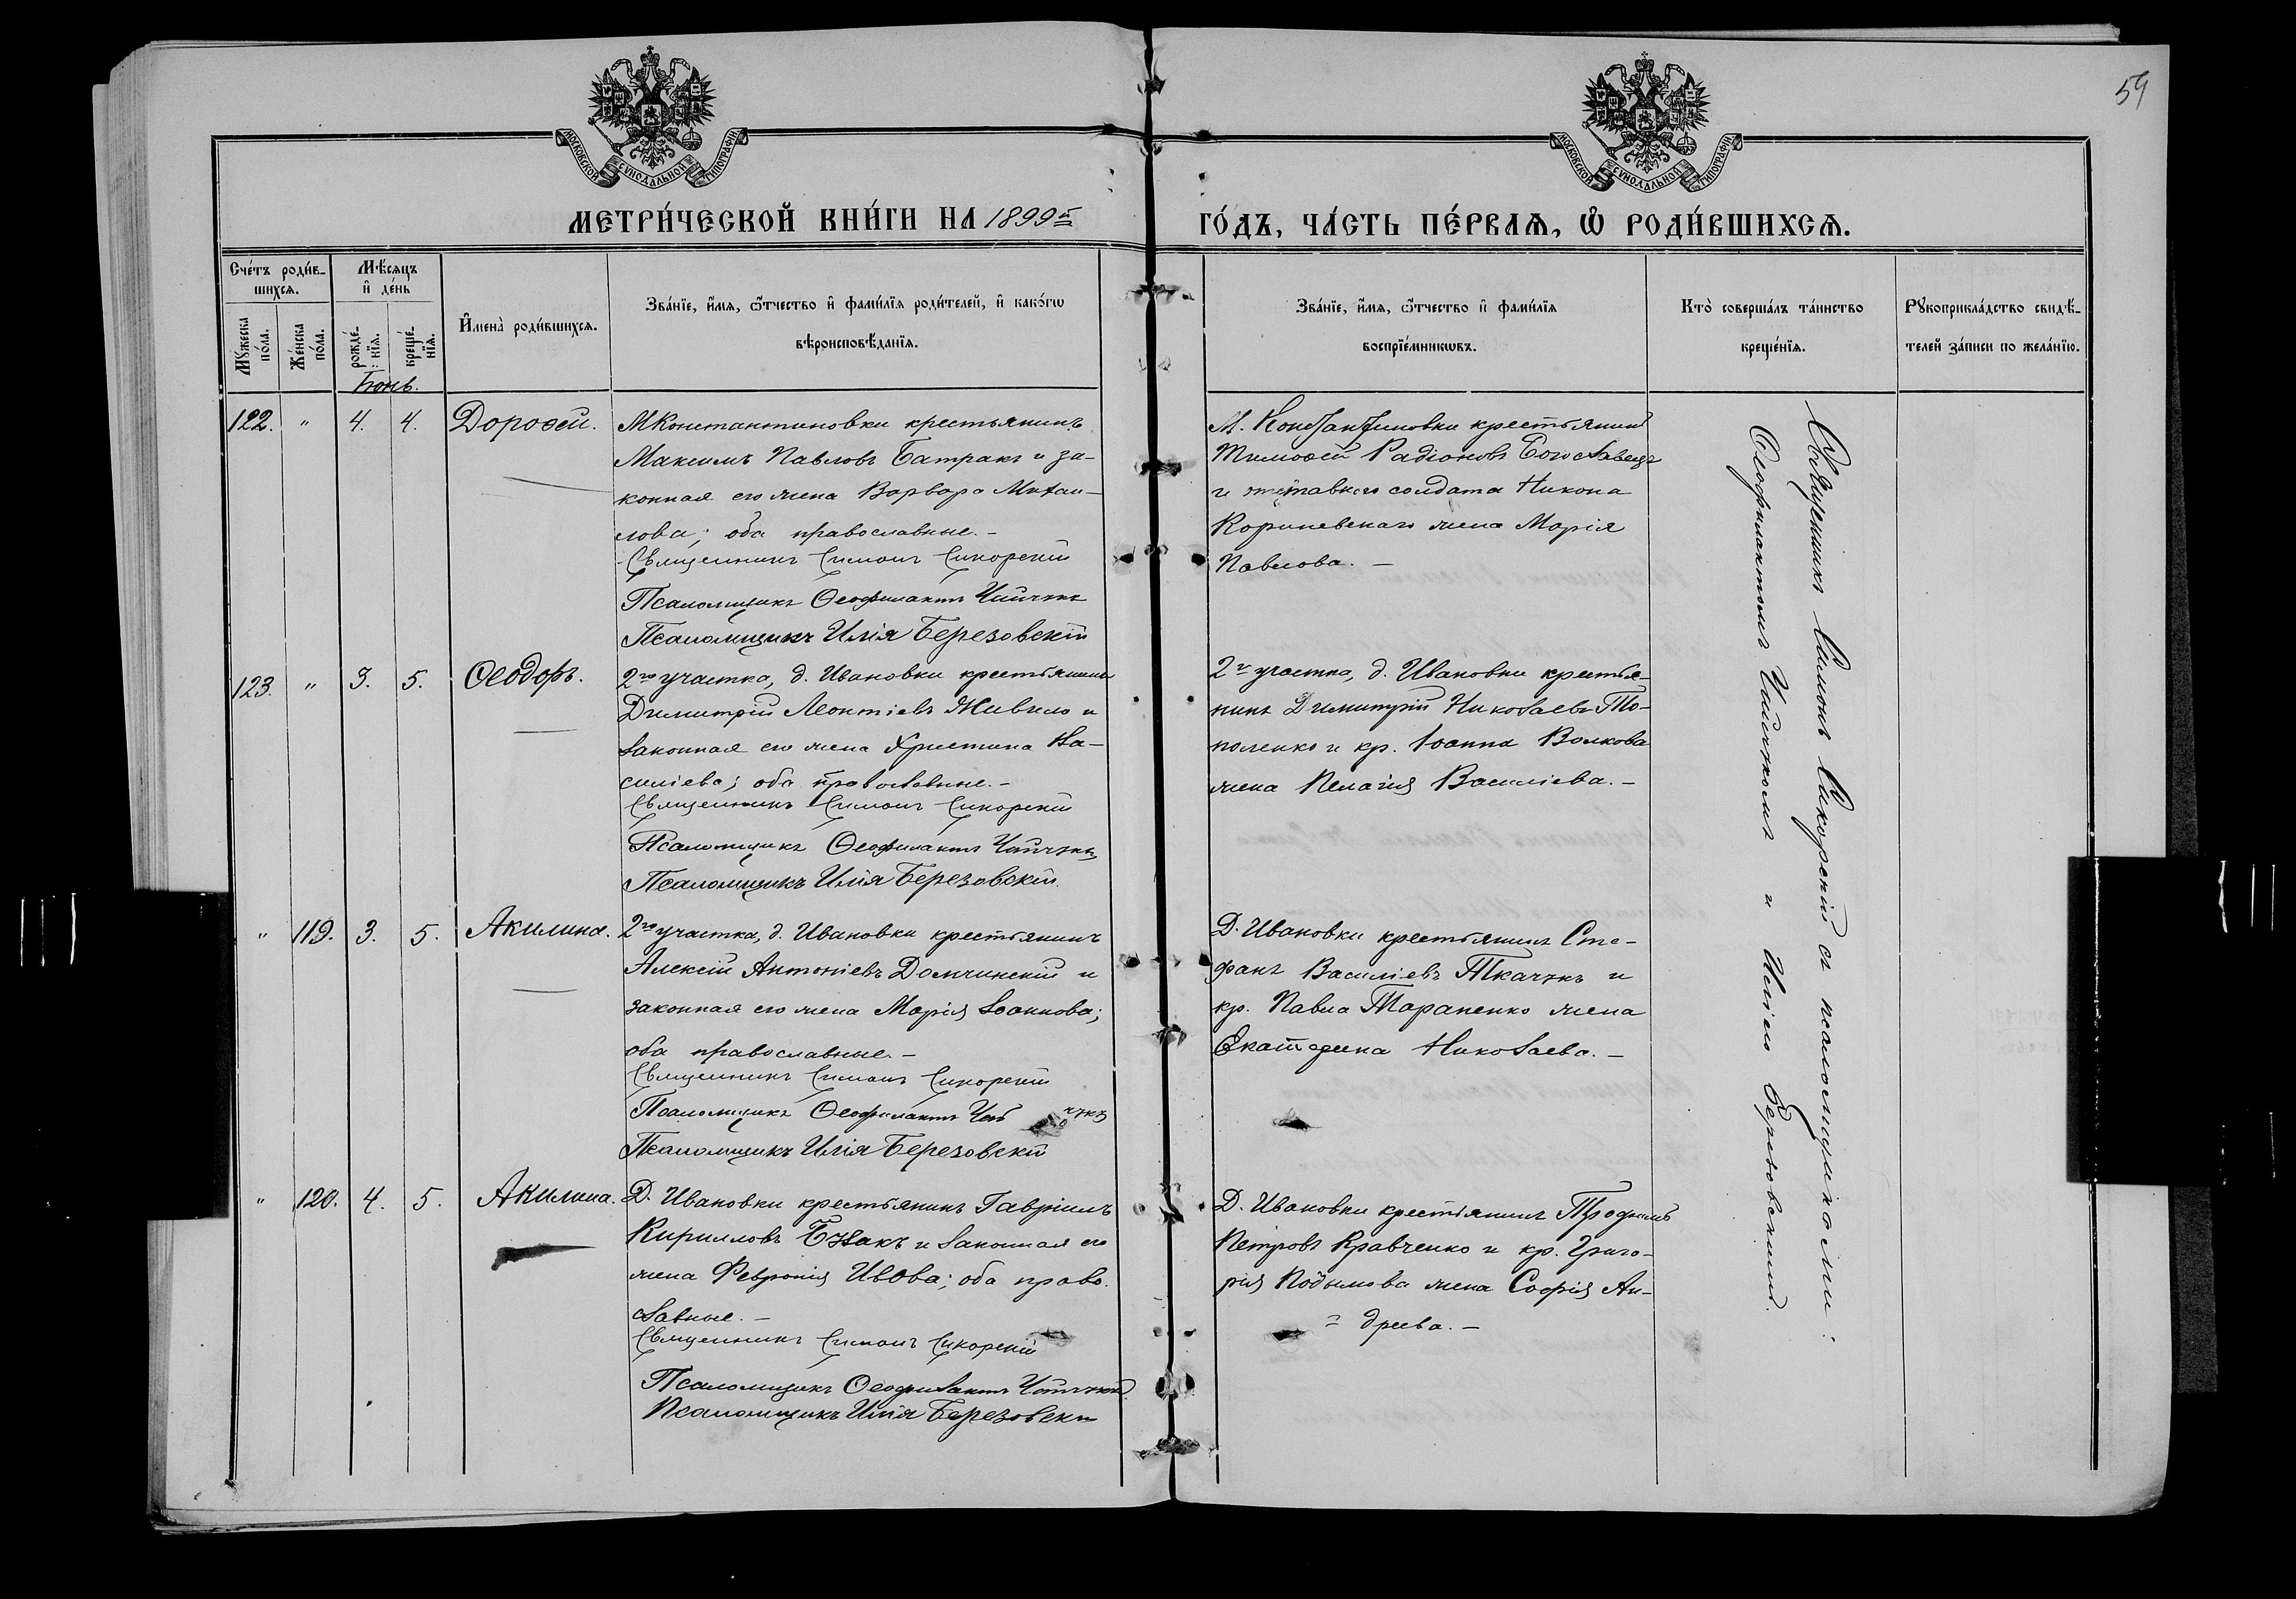 54
МОСКОВСКОЙ СѴНОДАЛЬНОЙ ТИПОГРАФІИ
МОСКОВСКОЙ СѴНОДАЛЬНОЙ ТИПОГРАФІИ
МЕТРИ́ЧЕСКОЙ КНИ́ГИ НА 1899й
ГО́ДЪ, ЧА́СТЬ ПЕ́РВАѦ, Ѡ҆ РОДИ́ВШИХСѦ.
Сче́тъ роди́в-
шихсѧ.
Мѣ́сѧцъ
и҆ де́нь
Мꙋ́жеска
по́ла.
Же́нска
по́ла.
рожде́-
нїѧ.
креще́-
нїѧ.
И҆мена̀ роди́вшихсѧ.
Зва́нїе, и҆́мѧ, ѻ҆́тчество и҆ фами́лїѧ роди́телей, и҆ како́гѡ
вѣроисповѣ́данїѧ.
Зва́нїе, и҆́мѧ, ѻ҆́тчество и҆ фами́лїѧ
воспрїе́мникѡвъ.
Кто̀ соверша́лъ та́инство
креще́нїѧ.
Рꙋкоприкла́дство свидѣ́-
телей за́писи по жела́нїю.
Іюнь.
122. " 4. 4. Дороѳей.
М Константиновки крестьянинъ
Максимъ Павловъ Батракъ и за-
конная его жена Варвара Михаи-
лова; оба православные. -
Священникъ Симонъ Сикорскій
Псаломщикъ Ѳеофилактъ Чайчукъ
Псаломщикъ Илія Березовскій
М. Константиновки крестьянинъ
Тимоѳей Радіоновъ Богославецъ
и отставного солдата Никона
Кориневскаго жена Марія
Павлова. -
123. " 3. 5. Ѳеодоръ.
2го участка, д. Ивановки крестьянинъ
Димитрій Леонтіевъ Живило и
законная его жена Христина Ва-
силіева; оба православные. -
Священникъ Симонъ Сикорскій
Псаломщикъ Ѳеофилактъ Чайчукъ
Псаломщикъ Илія Березовскій.
2го участка, д. Ивановки крестья-
нинъ Димитрій Николаевъ То-
поленко и кр. Іоанна Волкова
жена Пелагія Василіева. -
" 119. 3. 5. Акилина.
2го участка, д. Ивановки крестьянинъ
Алексій Антоніевъ Домчинскій и
законная его жена Марія Іоаннова;
оба православные. -
Священникъ Симонъ Сикорскій
Псаломщикъ Ѳеофилактъ Чай чукъ
Псаломщикъ Илія Березовскій
Д. Ивановки крестьянинъ Сте-
фанъ Василіевъ Ткачукъ и
кр. Павла Тараненко жена
Екатерина Николаева. -
" 120. 4. 5. Акилина.
Д. Ивановки крестьянинъ Гавріилъ
Кирилловъ Бузакъ и законная его
жена Февронія Ивова; оба право-
славные. -
Священникъ Симонъ Сикорскій
Псаломщикъ Ѳеофилактъ Чайчукъ.
Псаломщикъ Илія Березовскій
Д. Ивановки крестьянинъ Трофимъ
Петровъ Кравченко и кр. Григо-
рія Подымова жена Софія Ан-
= дреева. -
Священникъ Симонъ Сикорскій съ псаломщиками:
Ѳеофилактомъ Чайчукомъ и Иліею Березовскимъ.